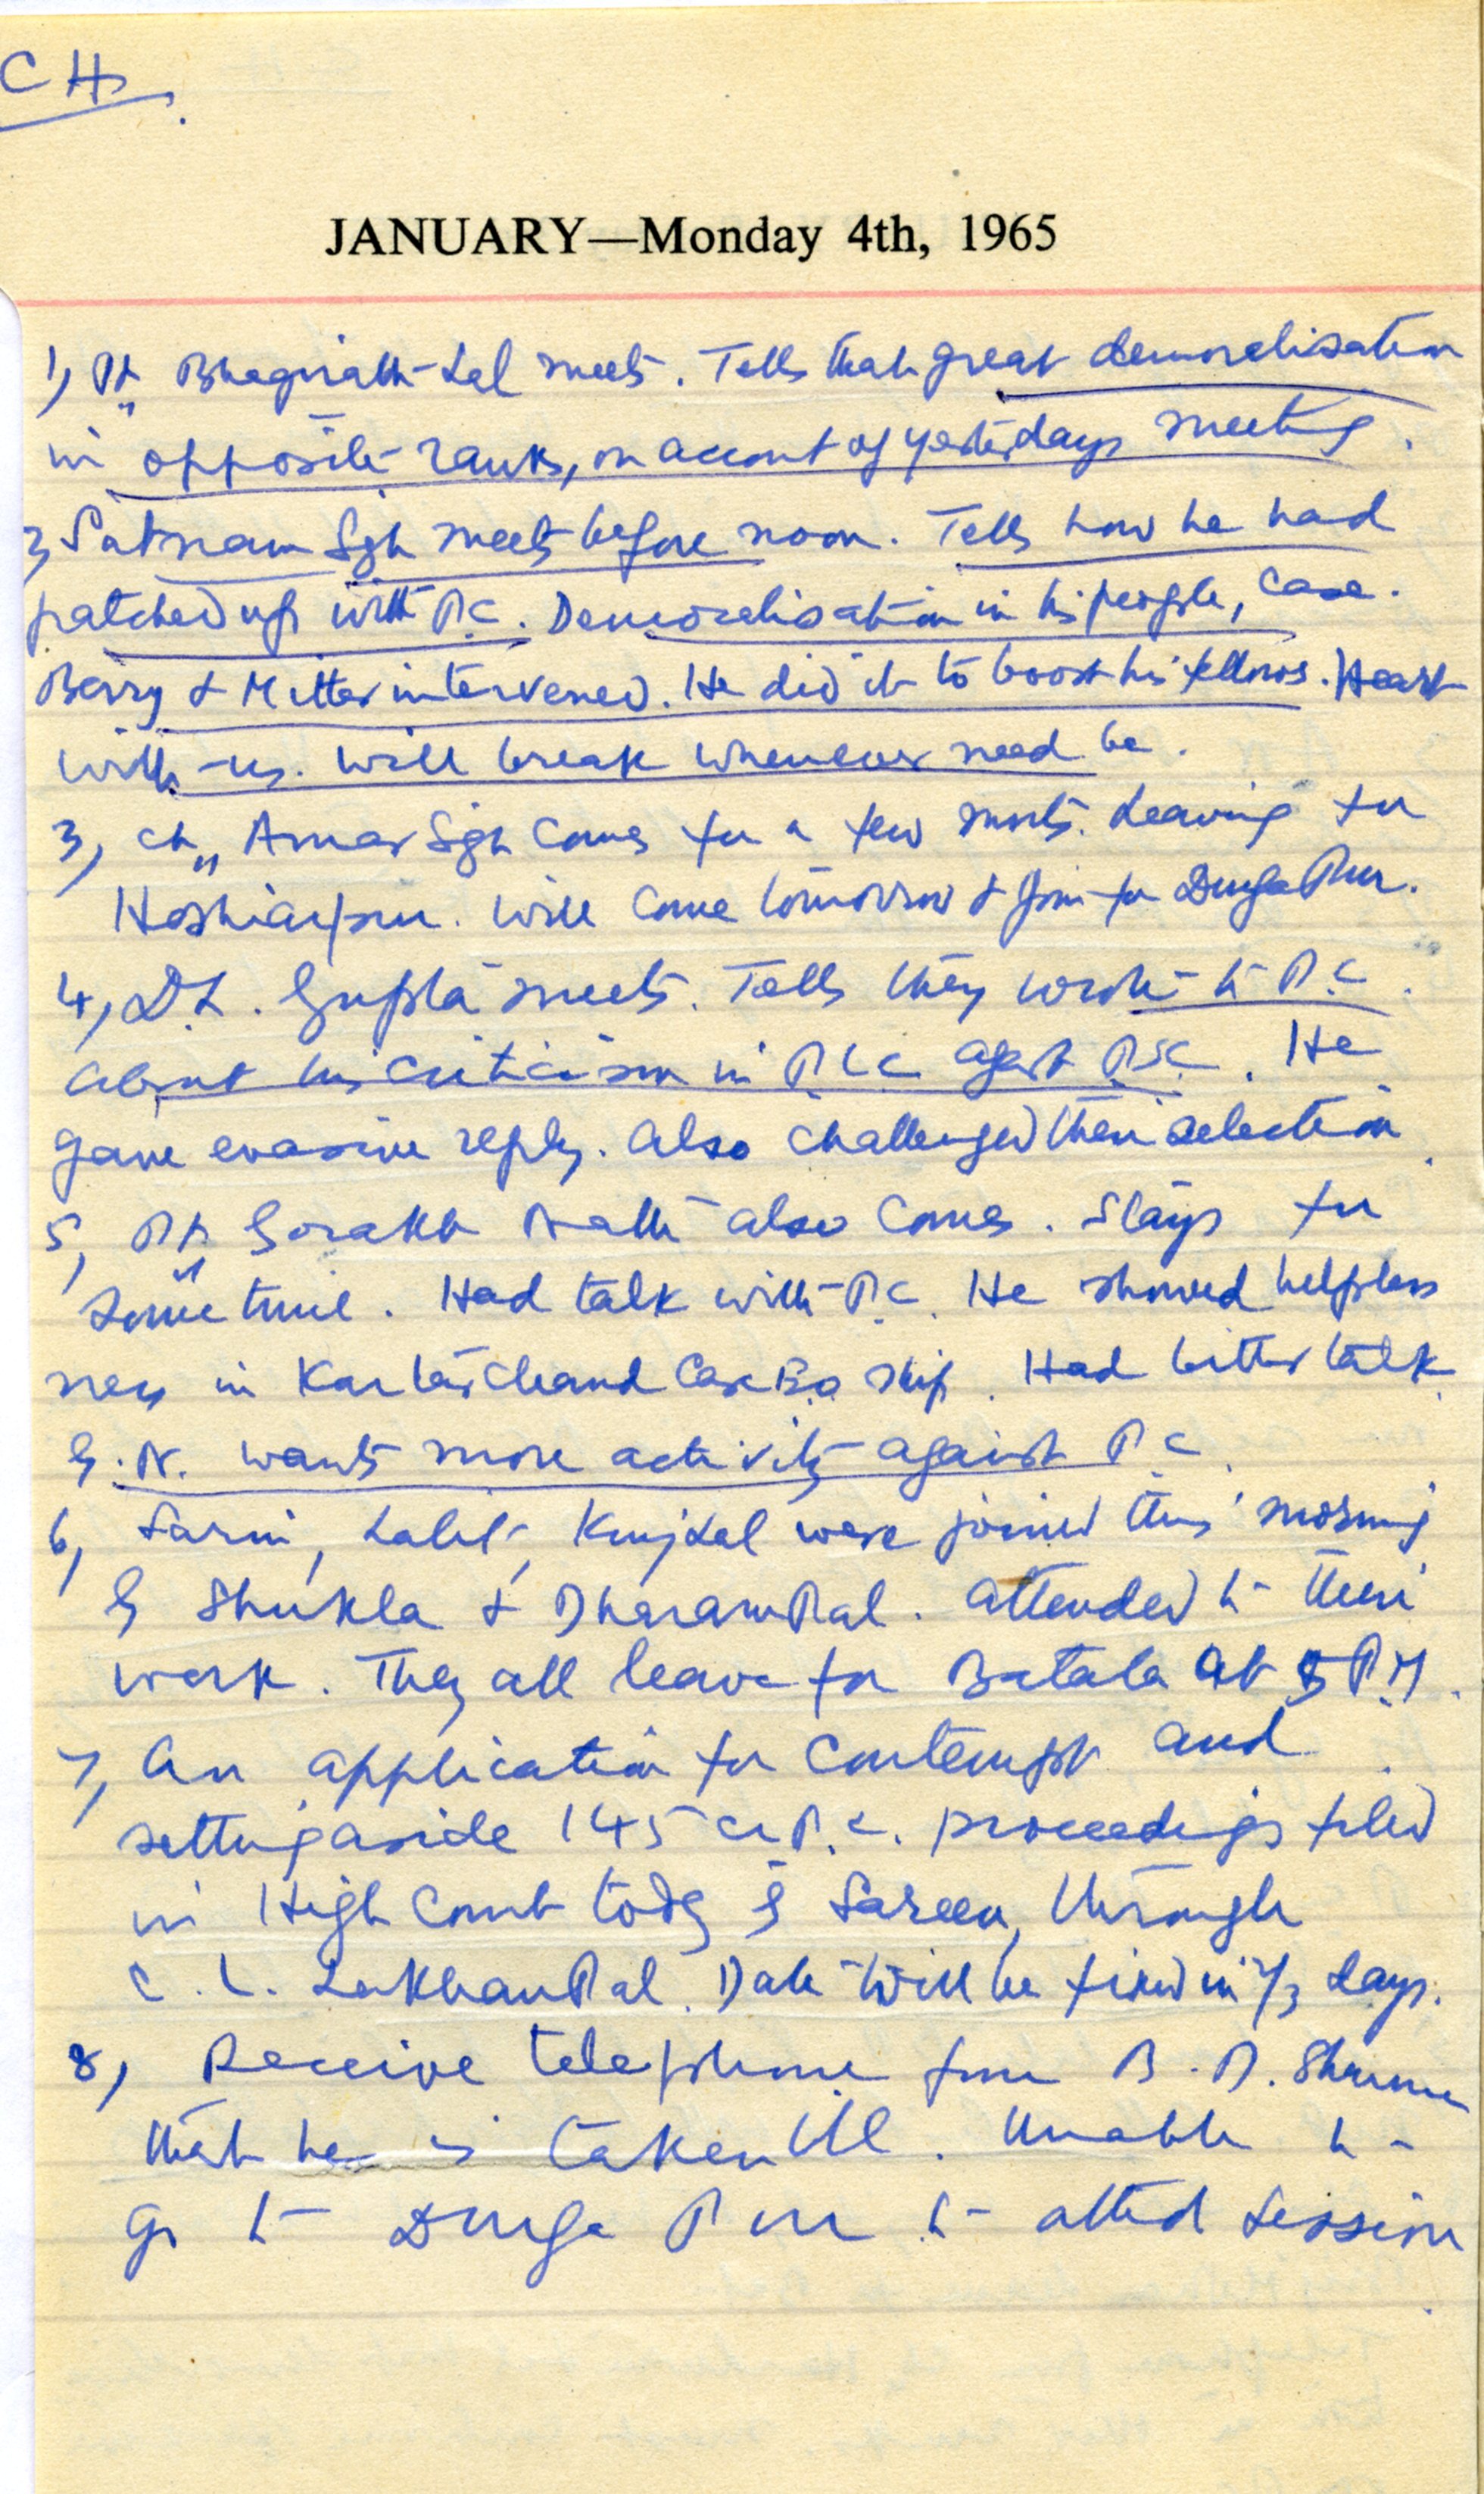 CH.
JANUARY—Monday 4th, 1965
1, Pt. Bhagirath Lal meets. Tells that great demoralisation
in opposite ranks, on account of yesterdays meeting.
2, Satnam Sgh meets before noon. Tells how he had
patched up with P.C. Demoralisation in his people, case.
Berry & Mitter intervened. He did it to boost his fellows. Heart
with us. will break whenever need be.
3, Ch,, Amar Sgh comes for a few mnts. Leaving for
Hoshiarpur. Will come tomorrow & join for DurgaPur.
4, D.L. Gupta meets. Tells they wrote to P.C.
about his criticism in agst P.S.C. He
gave evasive reply. Also challenged their selection.
5, Pt,, Gorakh Nath also comes. Stays for
sometime. Had talk with P.C. He showed helpless
ness in Kartar Chand Case ship. Had bitter talk.
G.N. wants more activity against P.C.
6, Sarin, Lalit, Kunj Lal were joined this morning
by Shukla & DharamPal. attended to their
work. They all leave for Batala at 5 P.M.
7, An application for contempt and
setting aside 145 Cr.P.C. proceedings filed
in High Court today by Sareen, through
C.L. LakhanPal. Date will be fixed in 2/3 days.
8, Receive telephone from B.D. Sharma
that he is taken ill. Unable to
go to Durga Pur to attend Session